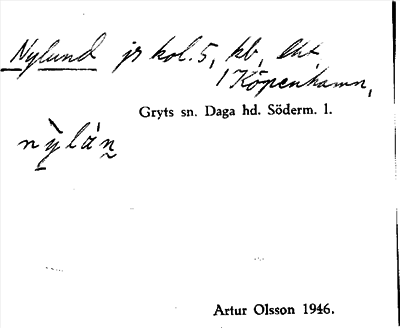 Nylund jr kol. 5, kb,
/ Köpenhamn,
Gryts sn. Daga hd. Söderm. l.
nỳlán̰
Artur Olsson 1946.